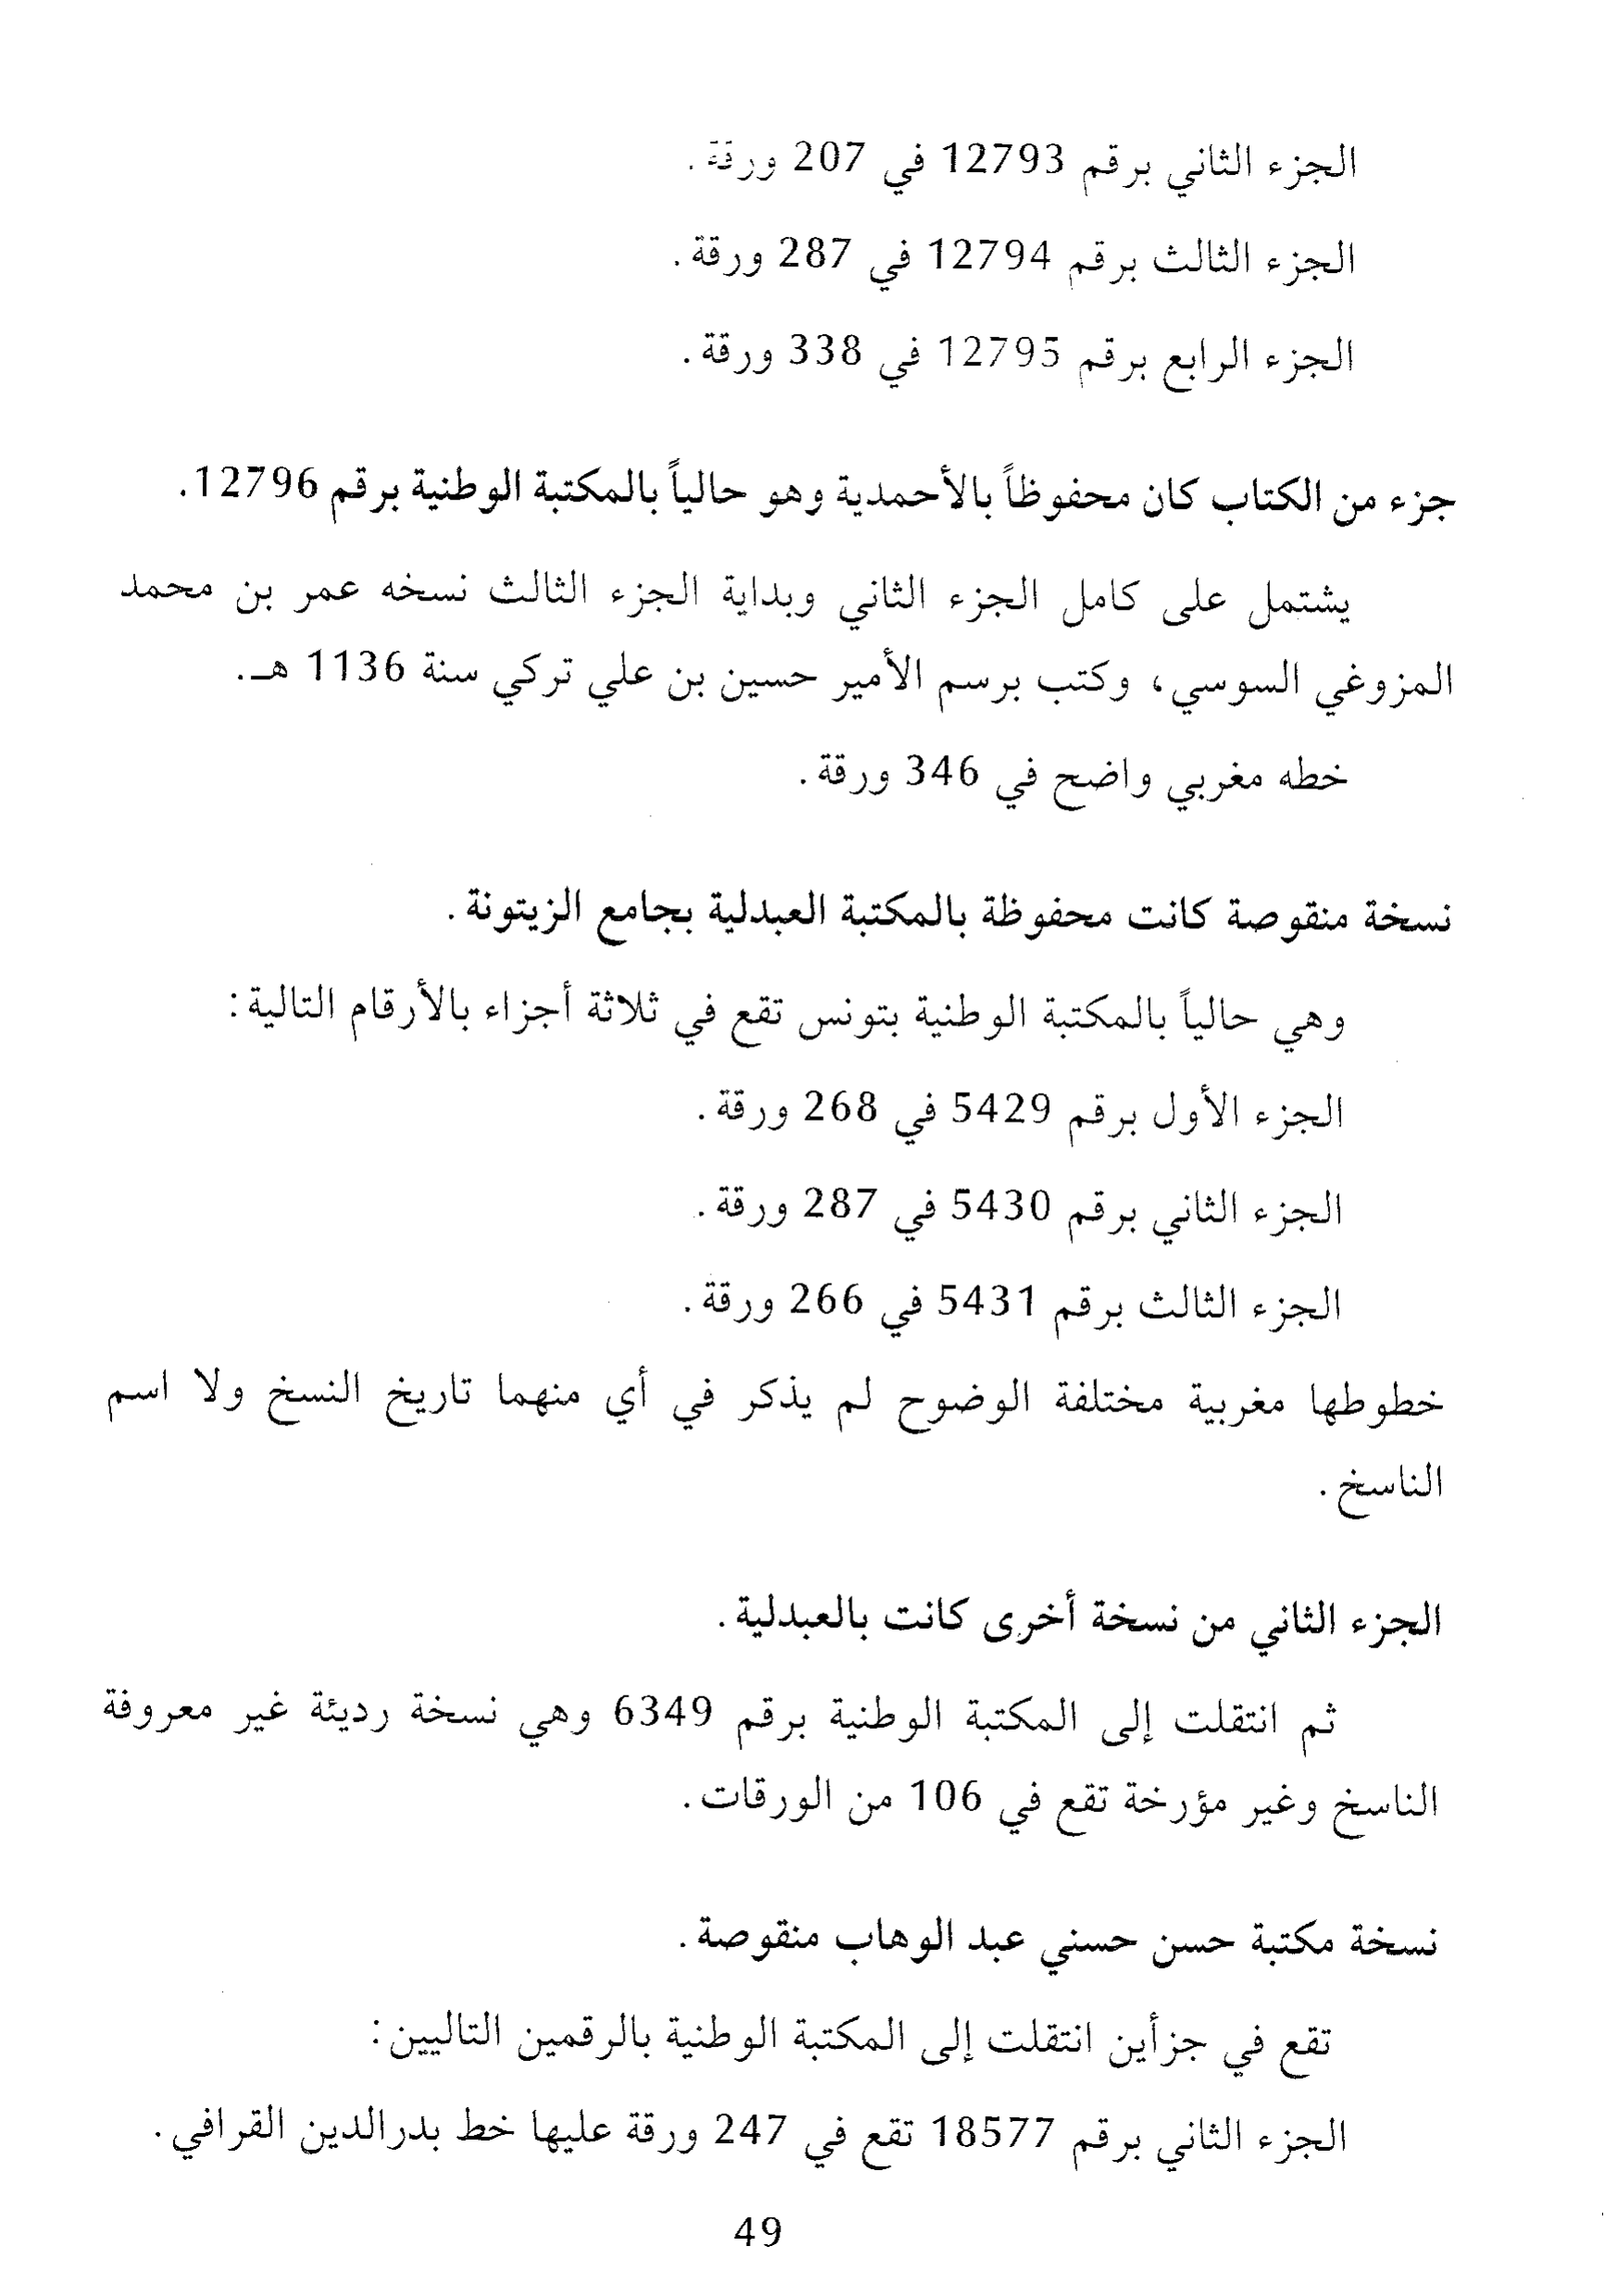 الجزء الثاني برقم 12793 في 207 ورقة.
الجزء الثالث برقم 12794 في 287 ورقة.
الجزء الرابع برقم 12795 في 338 ورقة.
جزء من الكتاب كان محفوظاً بالأحمدية وهو حالياً بالمكتبة الوطنية برقم 12796.
يشتمل على كامل الجزء الثاني وبداية الجزء الثالث نسخه عمر بن محمد
المزوغي السوسي، وكتب برسم الأمير حسين بن علي تركي سنة 1136 هـ.
خطه مغربي واضح في 346 ورقة.
نسخة منقوصة كانت محفوظة بالمكتبة العبدلية بجامع الزيتونة.
وهي حالياً بالمكتبة الوطنية بتونس تقع في ثلاثة أجزاء بالأرقام التالية:
الجزء الأول برقم 5429 في 268 ورقة.
الجزء الثاني برقم 5430 في 287 ورقة.
الجزء الثالث برقم 5431 في 266 ورقة.
خطوطها مغربية مختلفة الوضوح لم يذكر في أي منهما تاريخ النسخ ولا اسم
الناسخ.
الجزء الثاني من نسخة أخرى كانت بالعبدلية.
ثم انتقلت إلى المكتبة الوطنية برقم 6349 وهي نسخة رديئة غير معروفة
الناسخ وغير مؤرخة تقع في 106 من الورقات.
نسخة مكتبة حسن حسني عبد الوهاب منقوصة.
تقع في جزأين انتقلت إلى المكتبة الوطنية بالرقمين التاليين:
الجزء الثاني برقم 18577 تقع في 247 ورقة عليها خط بدرالدين القرافي.
49